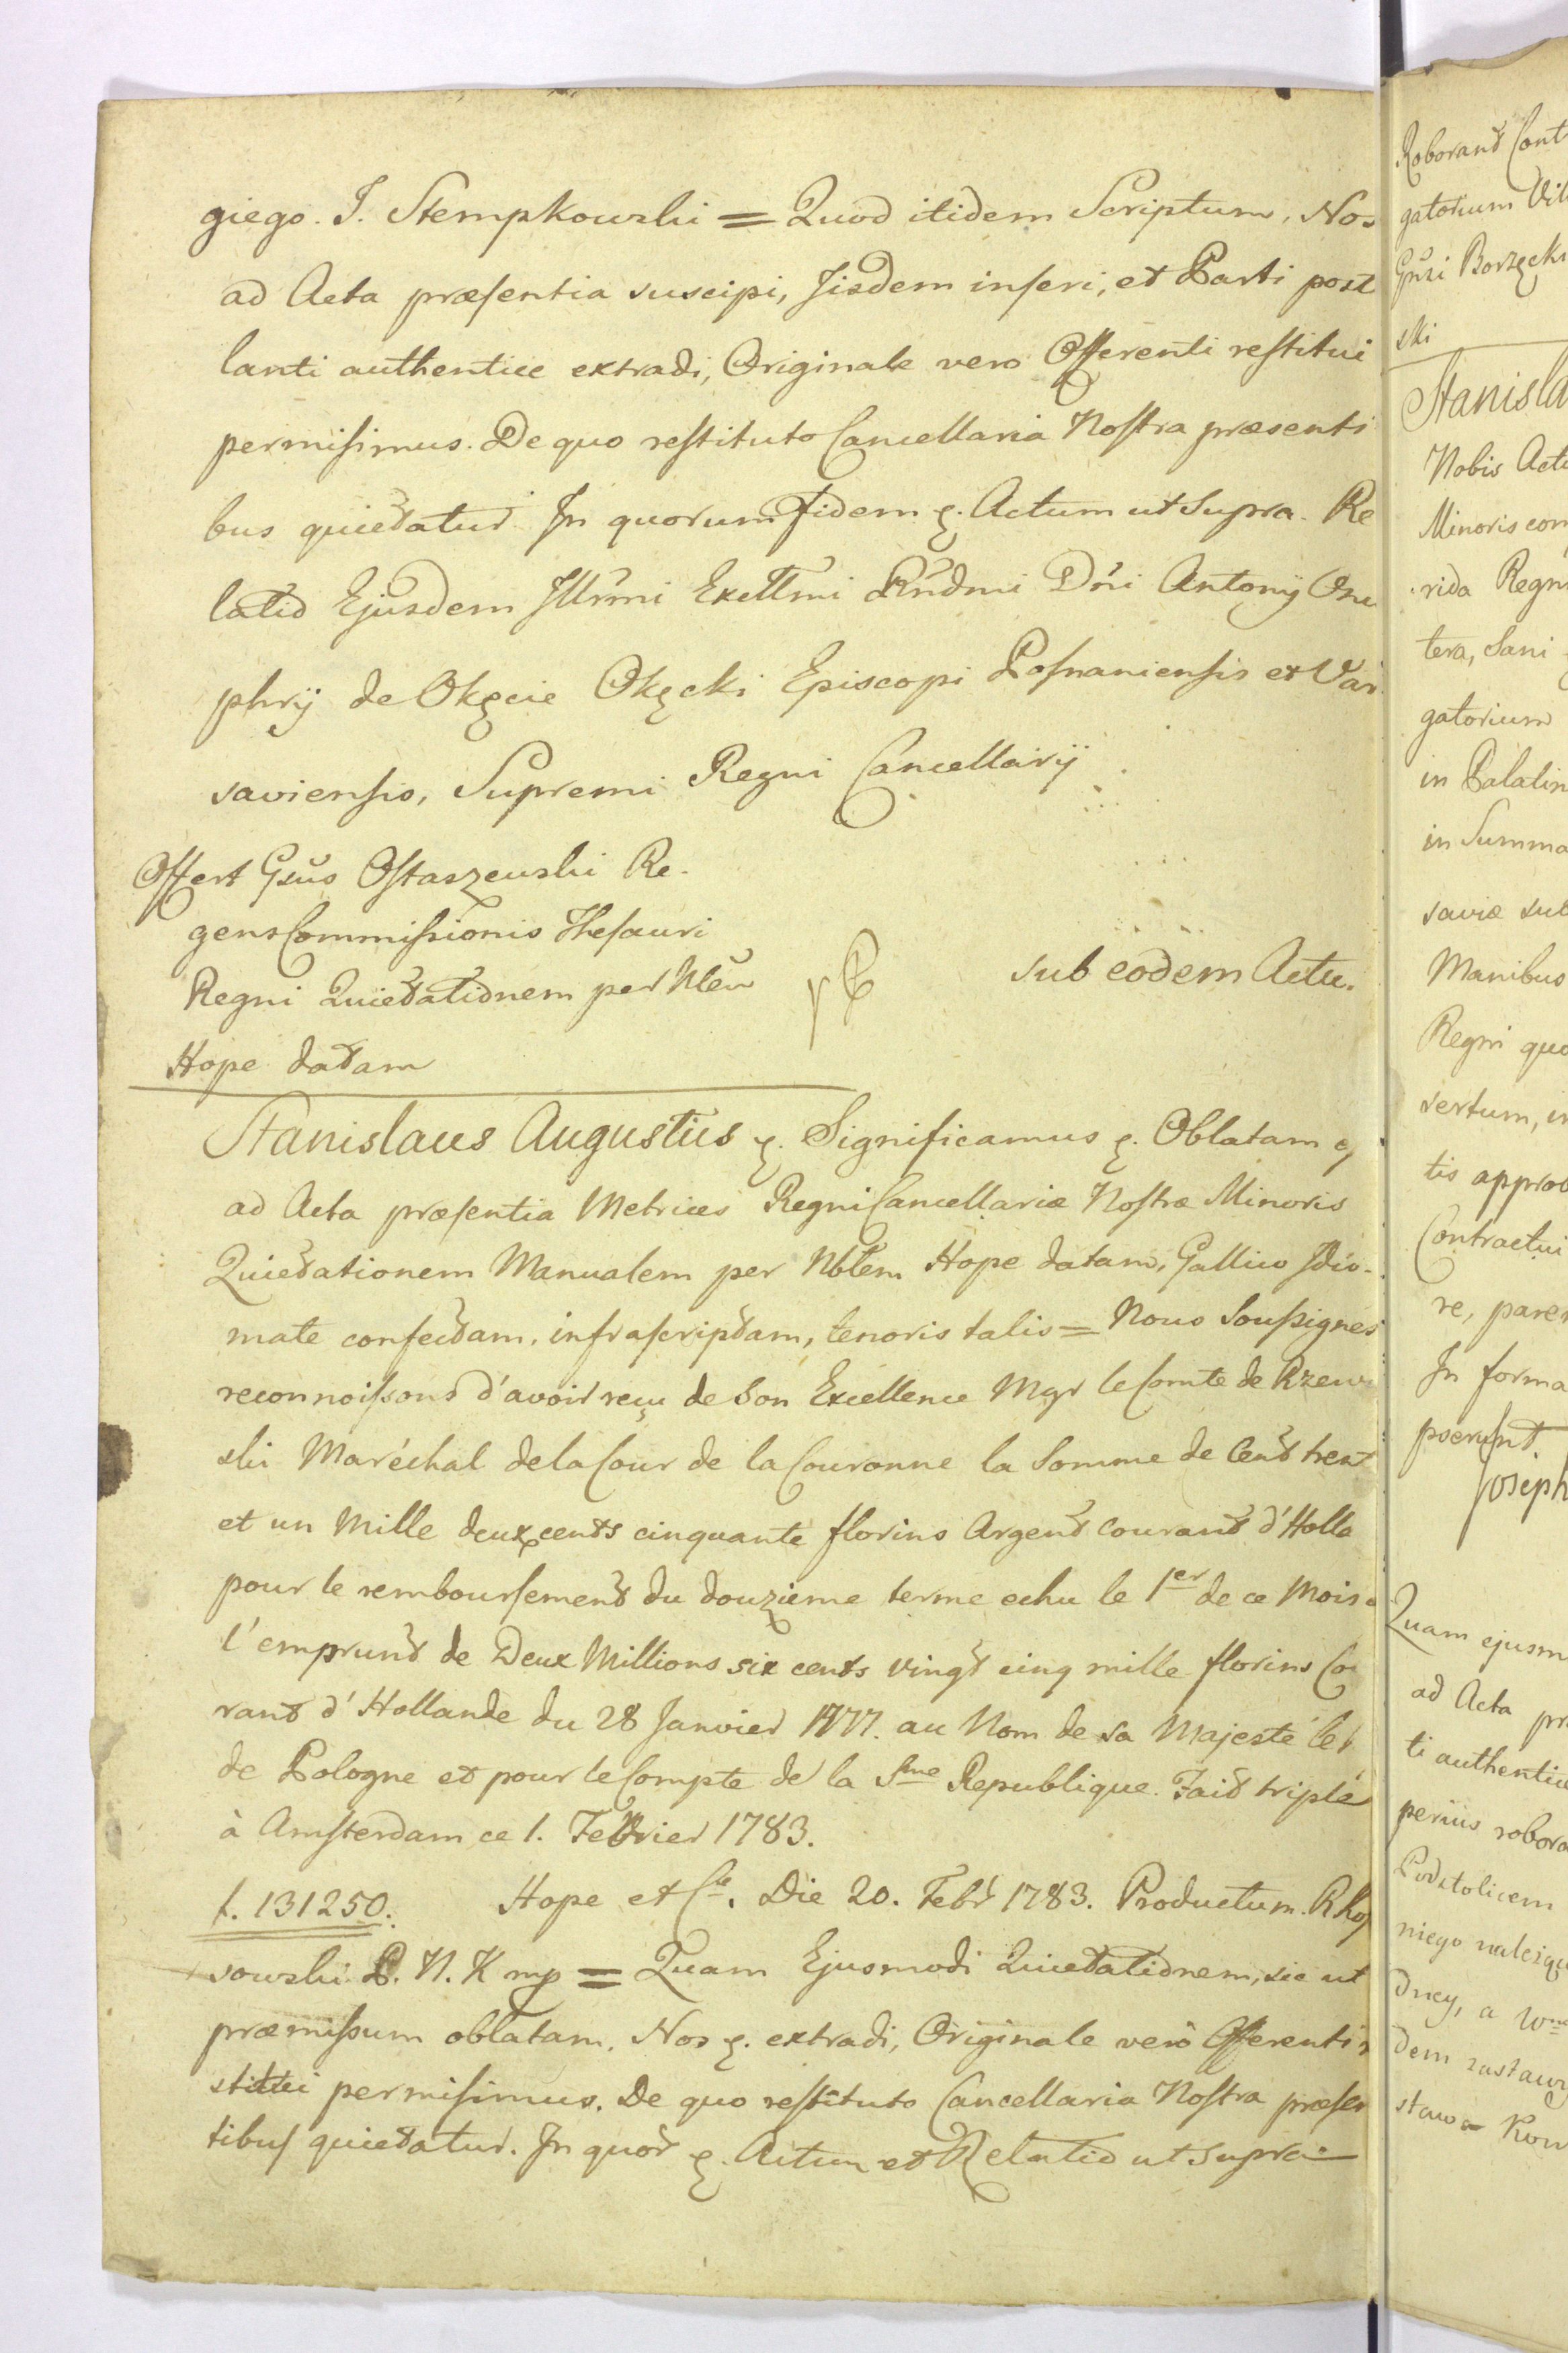 giego. J. Stempkowski = Quod itidem Scriptum, Nos
ad Acta præsentia suscipi, Iisdem inseri, et Parti post
lanti authentice extradi, Originale vero Offerenti restitui
permisimus. De quo restituto Cancellaria Nostra præsenti
bus quietatur. In quorum Fidem &. Actum ut Supra. Re
latio Ejusdem Illrmi Exellmi Rndmi Dni Antonij Onu
phrij de Okęcie Okęcki Episcopi Posnaniensis et Var
saviensis, Supremi Regni Cancellarij
Offert Gsus Ostaszewski Re-
gens Commissionis Thesauri
Regni Quietationem per Nlem
Hope datam
sub eodem Actu.
Stanislaus Augustus &. Significamus &. Oblatam e
ad Acta præsentia Metrices Regni Cancellariæ Nostræ Minoris
Quietationem Manualem per Nblem Hope datam, Gallico Idio-
mate confectam, infrascriptam, tenoris talis = Nous Soussignes
reconnoissons d'avoir reçu de Son Excellence Mgr le Comte de Rzewu
ski Maréchal de la Cour de la Couronne la Somme de Cent trent
et un Mille deux cents cinquante florins Argent Courant d'Holla
pour le remboursement du douzieme terme echu le 1er de ce Mois d
l'emprunt de Deux Millions six cents vingt cinq mille florins Cou
rant d'Hollande du 28 Janvier 1777. au Nom de sa Majesté le
de Pologne et pour le Compte de la Sme Republique. Fait triple
à Amsterdam ce 1. Fevrier 1783.
f. 131250. Hope et Cie. Die 20. Febr 1783. Productum. R Ko
sowski P. N. K mp = Quam Ejusmodi Quietationem, sic ut
præmissum oblatam, Nos &. extradi, Originale vero Offerenti r
stitui permisimus. De quo restituto Cancellaria Nostra præsen
tibus quietatur. In quor &. Actum et Relatio ut supra
Roborant Cont
gatorium Vil
Gnsi Borzęcki
ski
Stanisla
Nobis Actu
Minoris com
rida Regn
tera, Sani
gatorium
in Palatin
in Summa
saviæ sub
Manibus
Regni quo
sertum, in
tis approb
Contractui
re, paren
In forma
poerunt.
Joseph
Quam ejusm
ad Acta præ
ti authentice
perius robora
Podstolicem
niego należą
dney, a Wne
dem zastawy
stawa Kow